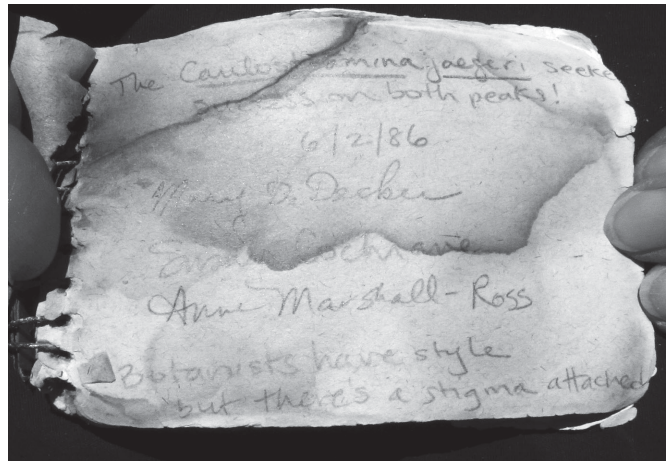 The Caulostramina jaegeri seeke
success on both peaks!
6/2/86
Mary D. Decker
Cochrane
Anne Marshall-Ross
Botanists have style
but there's a stigma attached